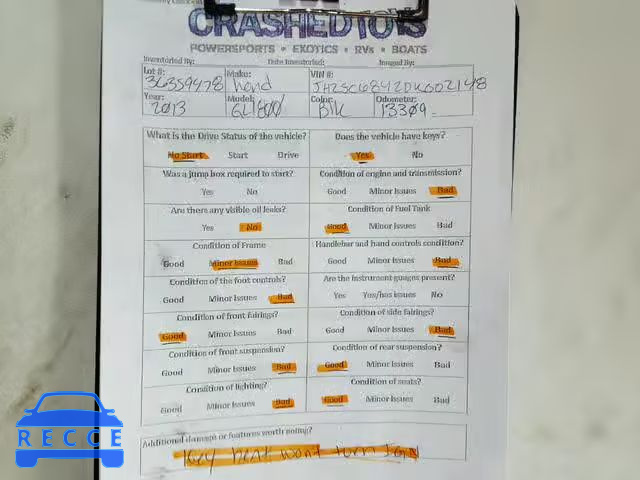 CRASHEDTOYS
POWERSPORTS • EXOTICS • RVs • BOATS
Inventoried By: Date Inventoried: Imaged By:
Lot #: Make: VIN #:
36359478 Hond JH2SC6842DK002148
Year: Model: Color: Odometer:
2013 GL1800 Blk 13309
What is the Drive Status of the vehicle? Does the vehicle have keys?
No Start Start Drive Yes No
Was a jump box required to start? Condition of engine and transmission?
Yes No Good Minor Issues Bad
Are there any visible oil leaks? Condition of Fuel Tank
Yes No Good Minor Issues Bad
Condition of Frame Handlebar and hand controls condition?
Good Minor Issues Bad Good Minor Issues Bad
Condition of the foot controls? Are the instrument gauges present?
Good Minor Issues Bad Yes Yes/has issues No
Condition of front fairings? Condition of side fairings?
Good Minor Issues Bad Good Minor Issues Bad
Condition of front suspension? Condition of rear suspension?
Good Minor Issues Bad Good Minor Issues Bad
Condition of lighting? Condition of seats?
Good Minor Issues Bad Good Minor Issues Bad
Additional damage or features worth noting?
Key bent wont turn IGN
RECCE